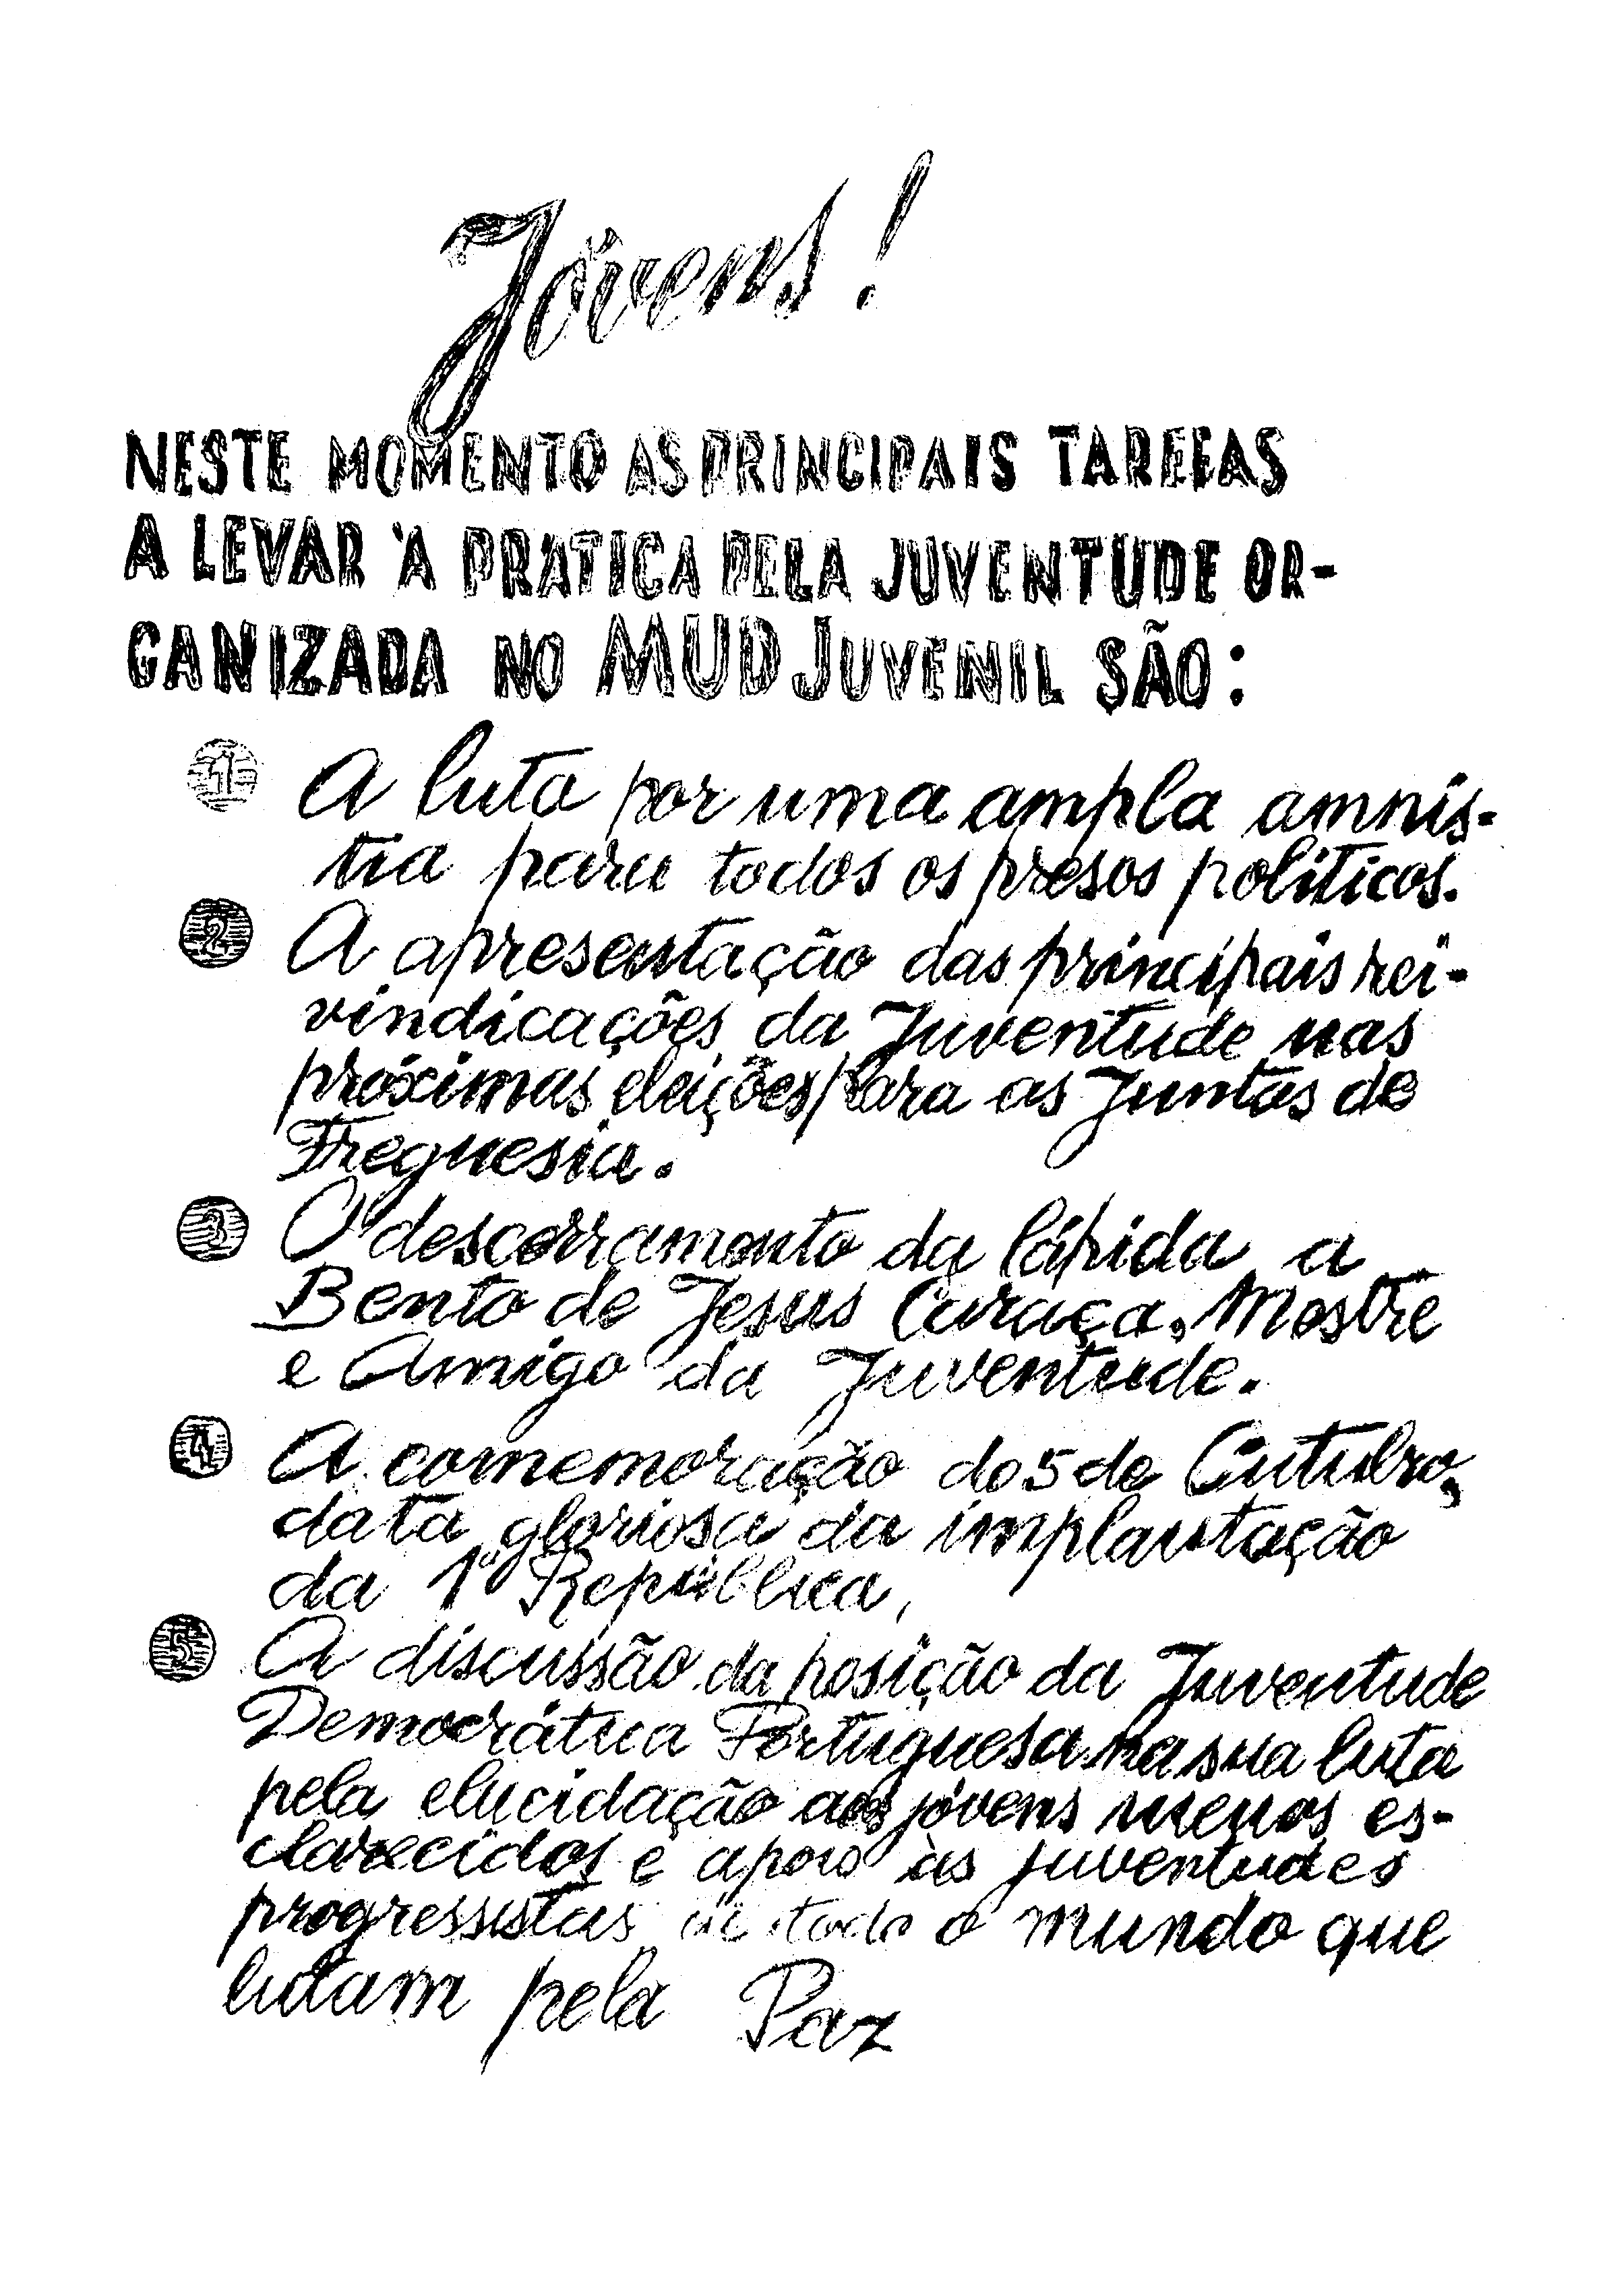 Jóvens!
NESTE MOMENTO AS PRINCIPAIS TAREFAS
A LEVAR À PRÁTICA PELA JUVENTUDE OR-
GANIZADA NO MUD JUVENIL SÃO:
1 A luta por uma ampla amnis-
tia para todos os presos políticos.
2 A apresentação das principais rei-
vindicações da Juventude nas
próximas eleições para as Juntas de
Freguesia.
3 O descerramento da lápida a
Bento de Jesus Caraça, Mestre
e Amigo da Juventude.
4 A comemoração do 5 de Outubro,
data gloriosa da implantação
da 1ª República,
5 A discussão da posição da Juventude
Democrática Portuguesa na sua luta
pela elucidação aos jóvens menos es-
clarecidos e apoio às juventudes
progressistas de todo o mundo que
lutam pela Paz